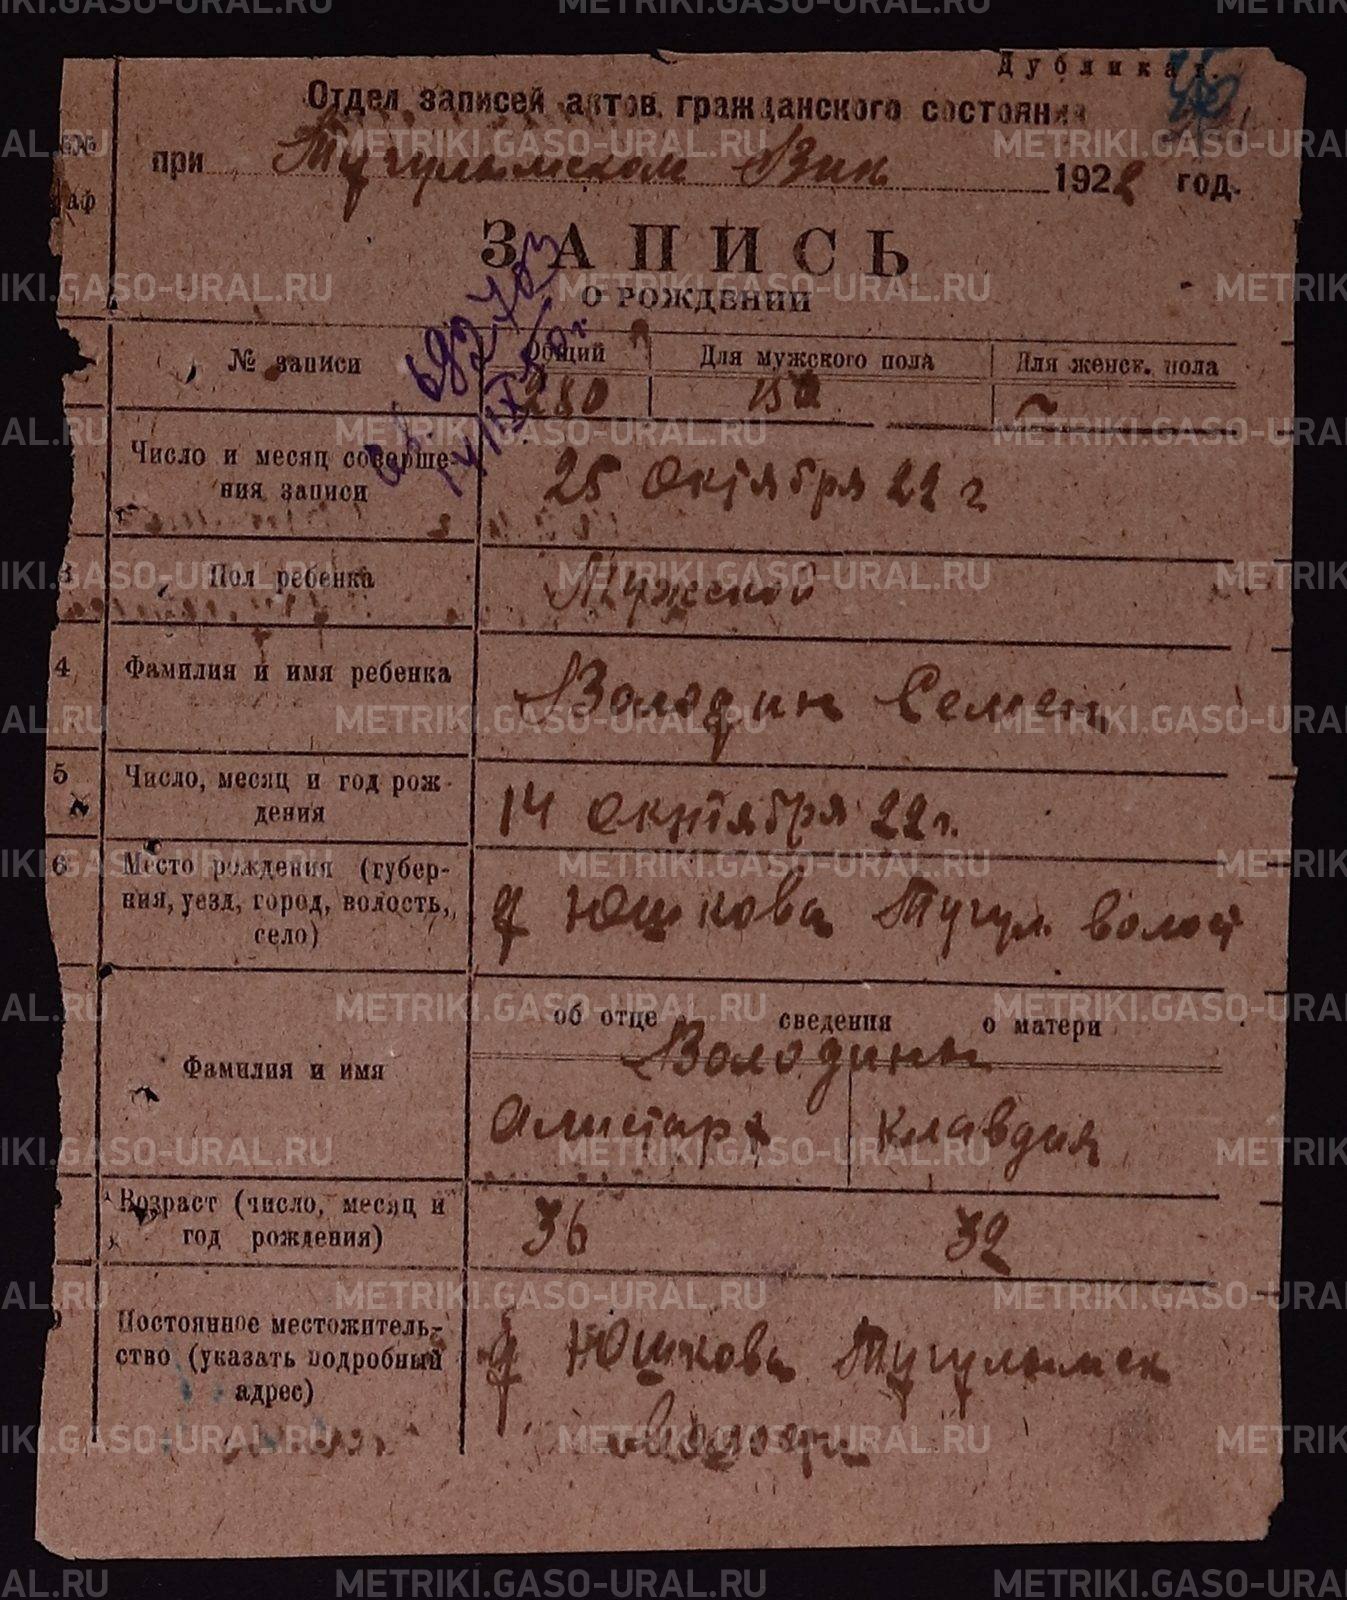 Дубликат.
Отдел записей актов гражданского состояния
при Тугулымском Вик 1922 год.
ЗАПИСЬ
О РОЖДЕНИИ
№ записи Общий Для мужского пола Для женск. пола
280 150 ~
Число и месяц соверше-
ния записи
25 Октября 22 г
3 Пол ребенка Мужской
4 Фамилия и имя ребенка Володин Семен
5 Число, месяц и год рож-
дения
14 Октября 22 г.
6 Место рождения (губер-
ния, уезд, город, волость,
село)
д Юшкова Тугул. волост
об отце сведения о матери
Володины
Фамилия и имя Алистарх Клавдия
Возраст (число, месяц и
год рождения)
36 32
Постоянное местожитель-
ство (указать подробный
адрес)
д Юшкова Тугулымск
волости
METRIKI.GASO-URAL.RU